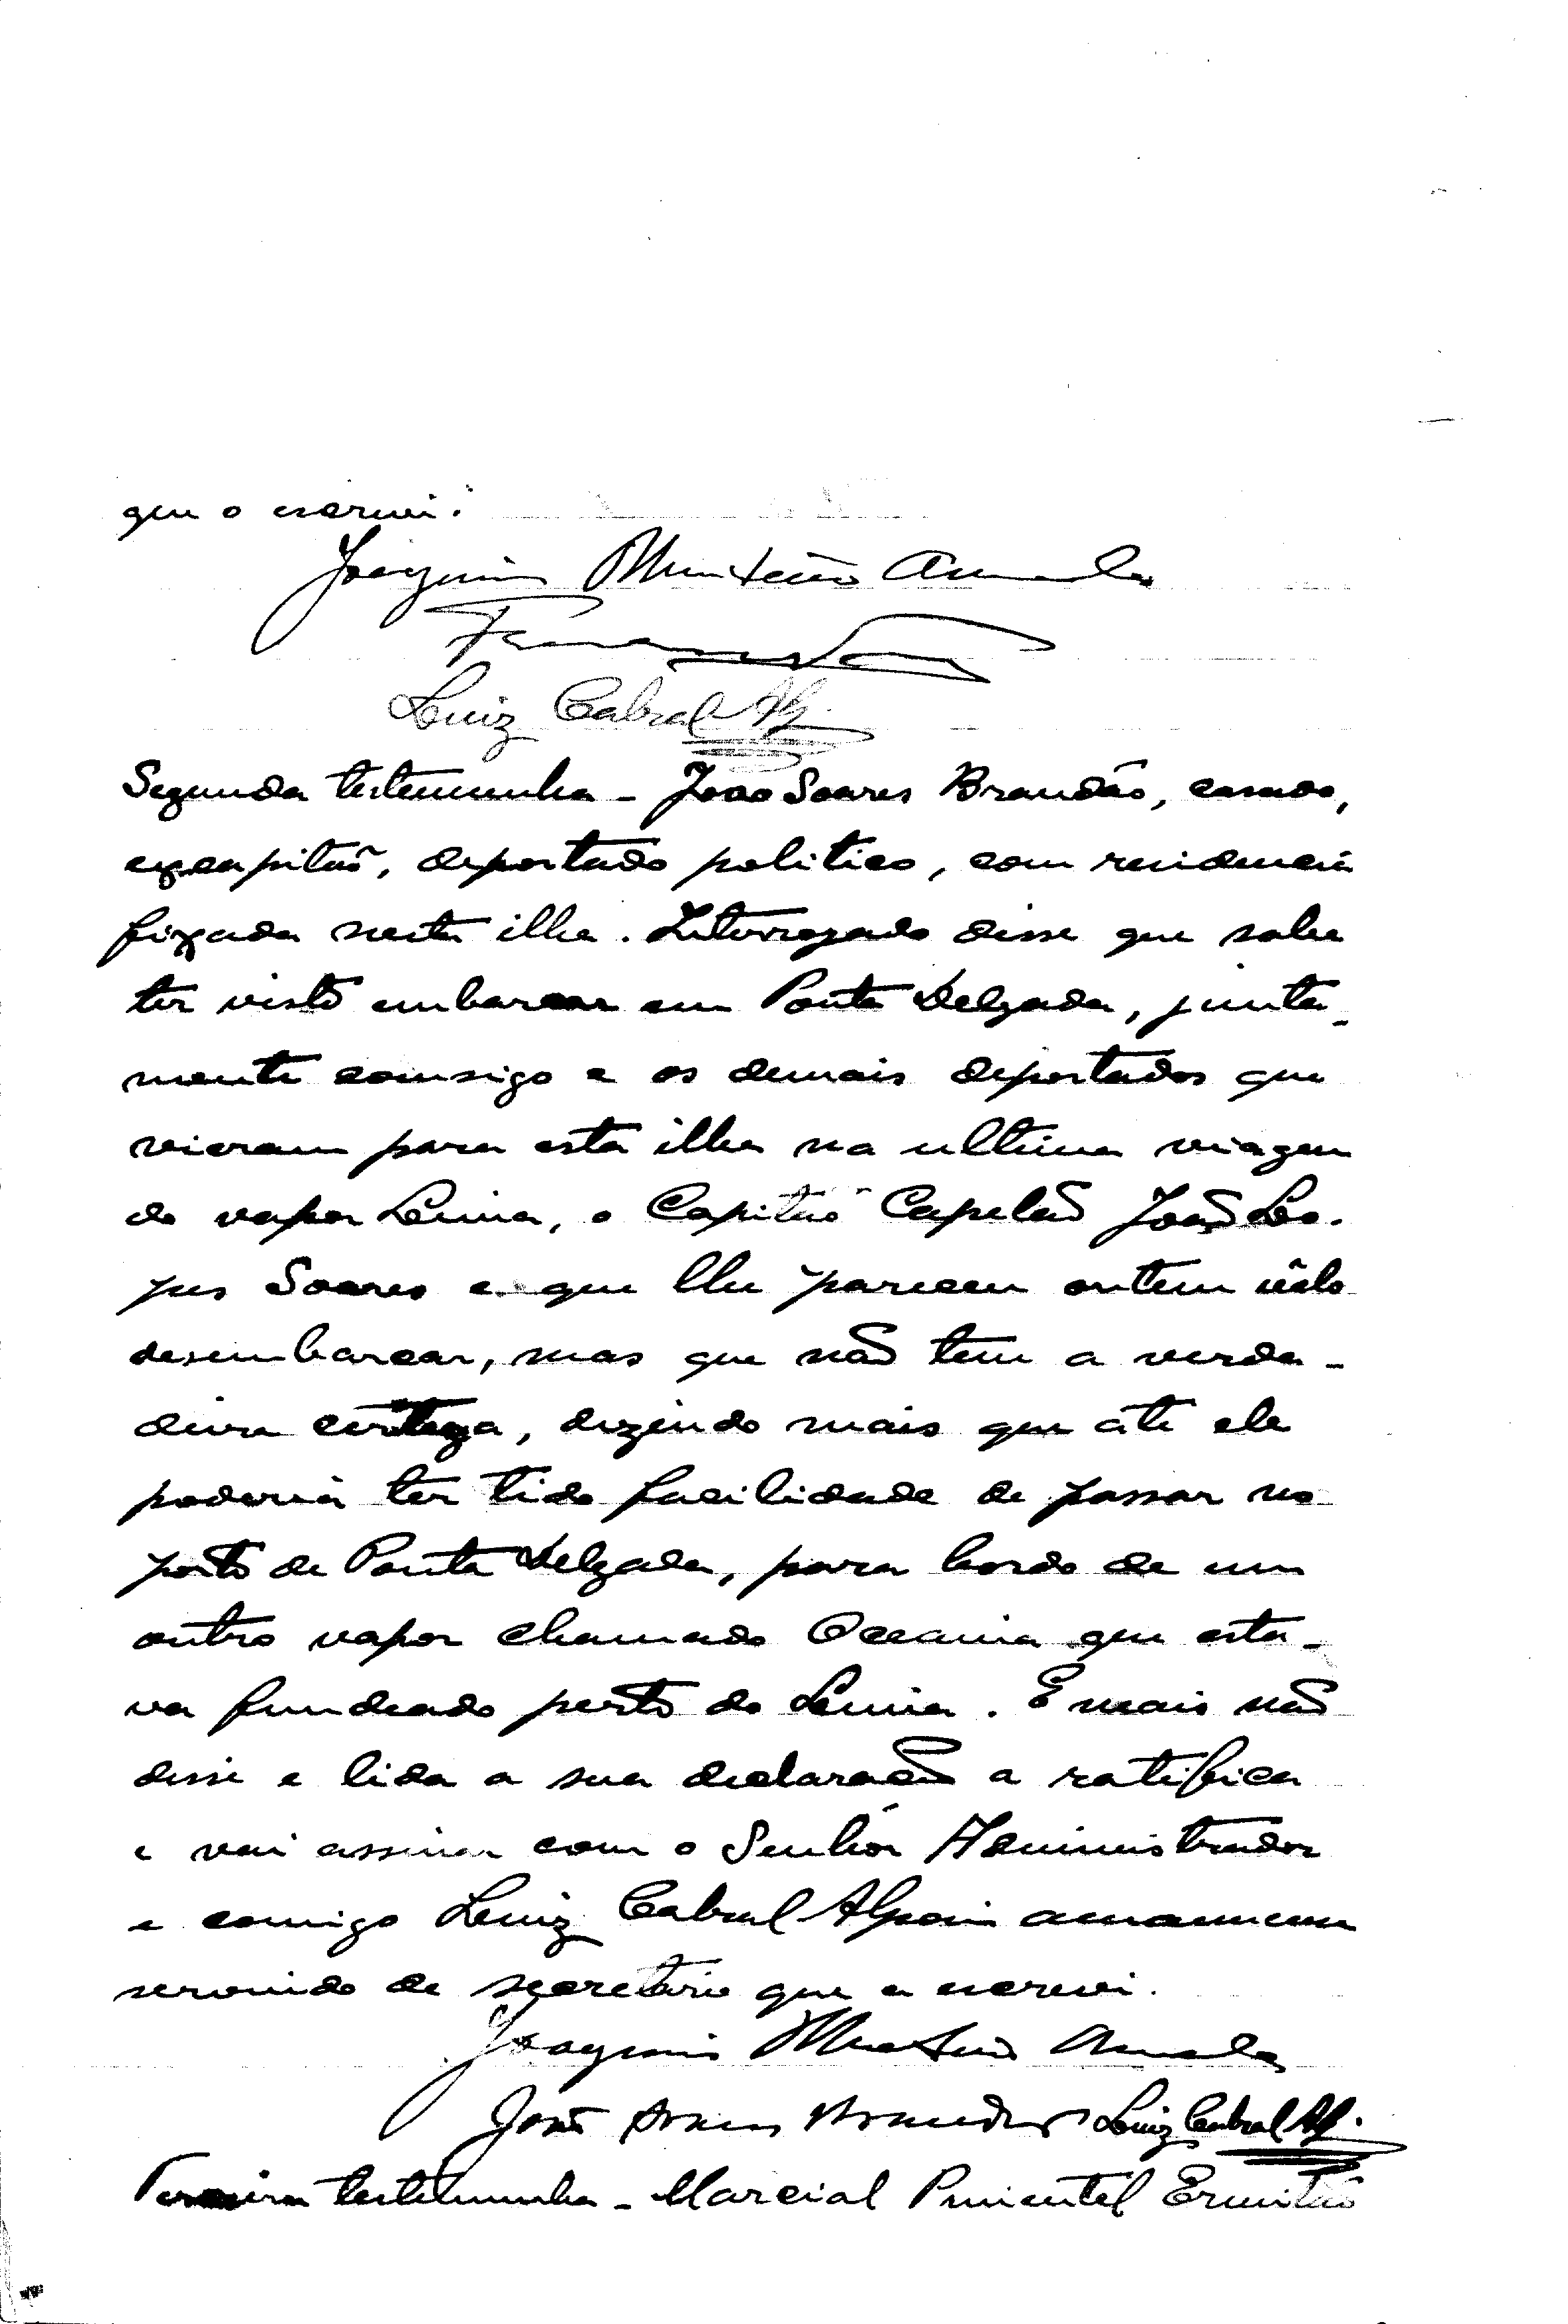 que o escrevi.
Joaquim Monteiro
Luiz Cabral
Segunda testemunha - João Soares Brandão, casado,
excapitão, deportado politico, com residencia
fixada nesta ilha. Interrogado disse que sabe
ter visto embarcar em Ponta Delgada, junta-
mente comsigo e os demais deportados que
vieram para esta ilha na ultima viagem
do vapor Lima, o Capitão Capelão João Lo-
pes Soares e que lhe pareceu ontem vêlo
desembarcar, mas que não tem a verda-
deira certeza, dizendo mais que até ele
poderia ter tido facilidade de passar no
porto de Ponta Delgada, para bordo de um
outro vapor chamado Oceania que esta-
va fundeado perto do Lima. E mais não
disse e lida a sua declaração a ratifica
e vai assinar com o Senhor Administrador
e comigo Luiz Cabral Alpoim amanuense
servindo de secretário que a escrevi.
Joaquim Monteiro
João Soares Brandão Luiz Cabral
Terceira testemunha - Marcial Pimentel Ermitão